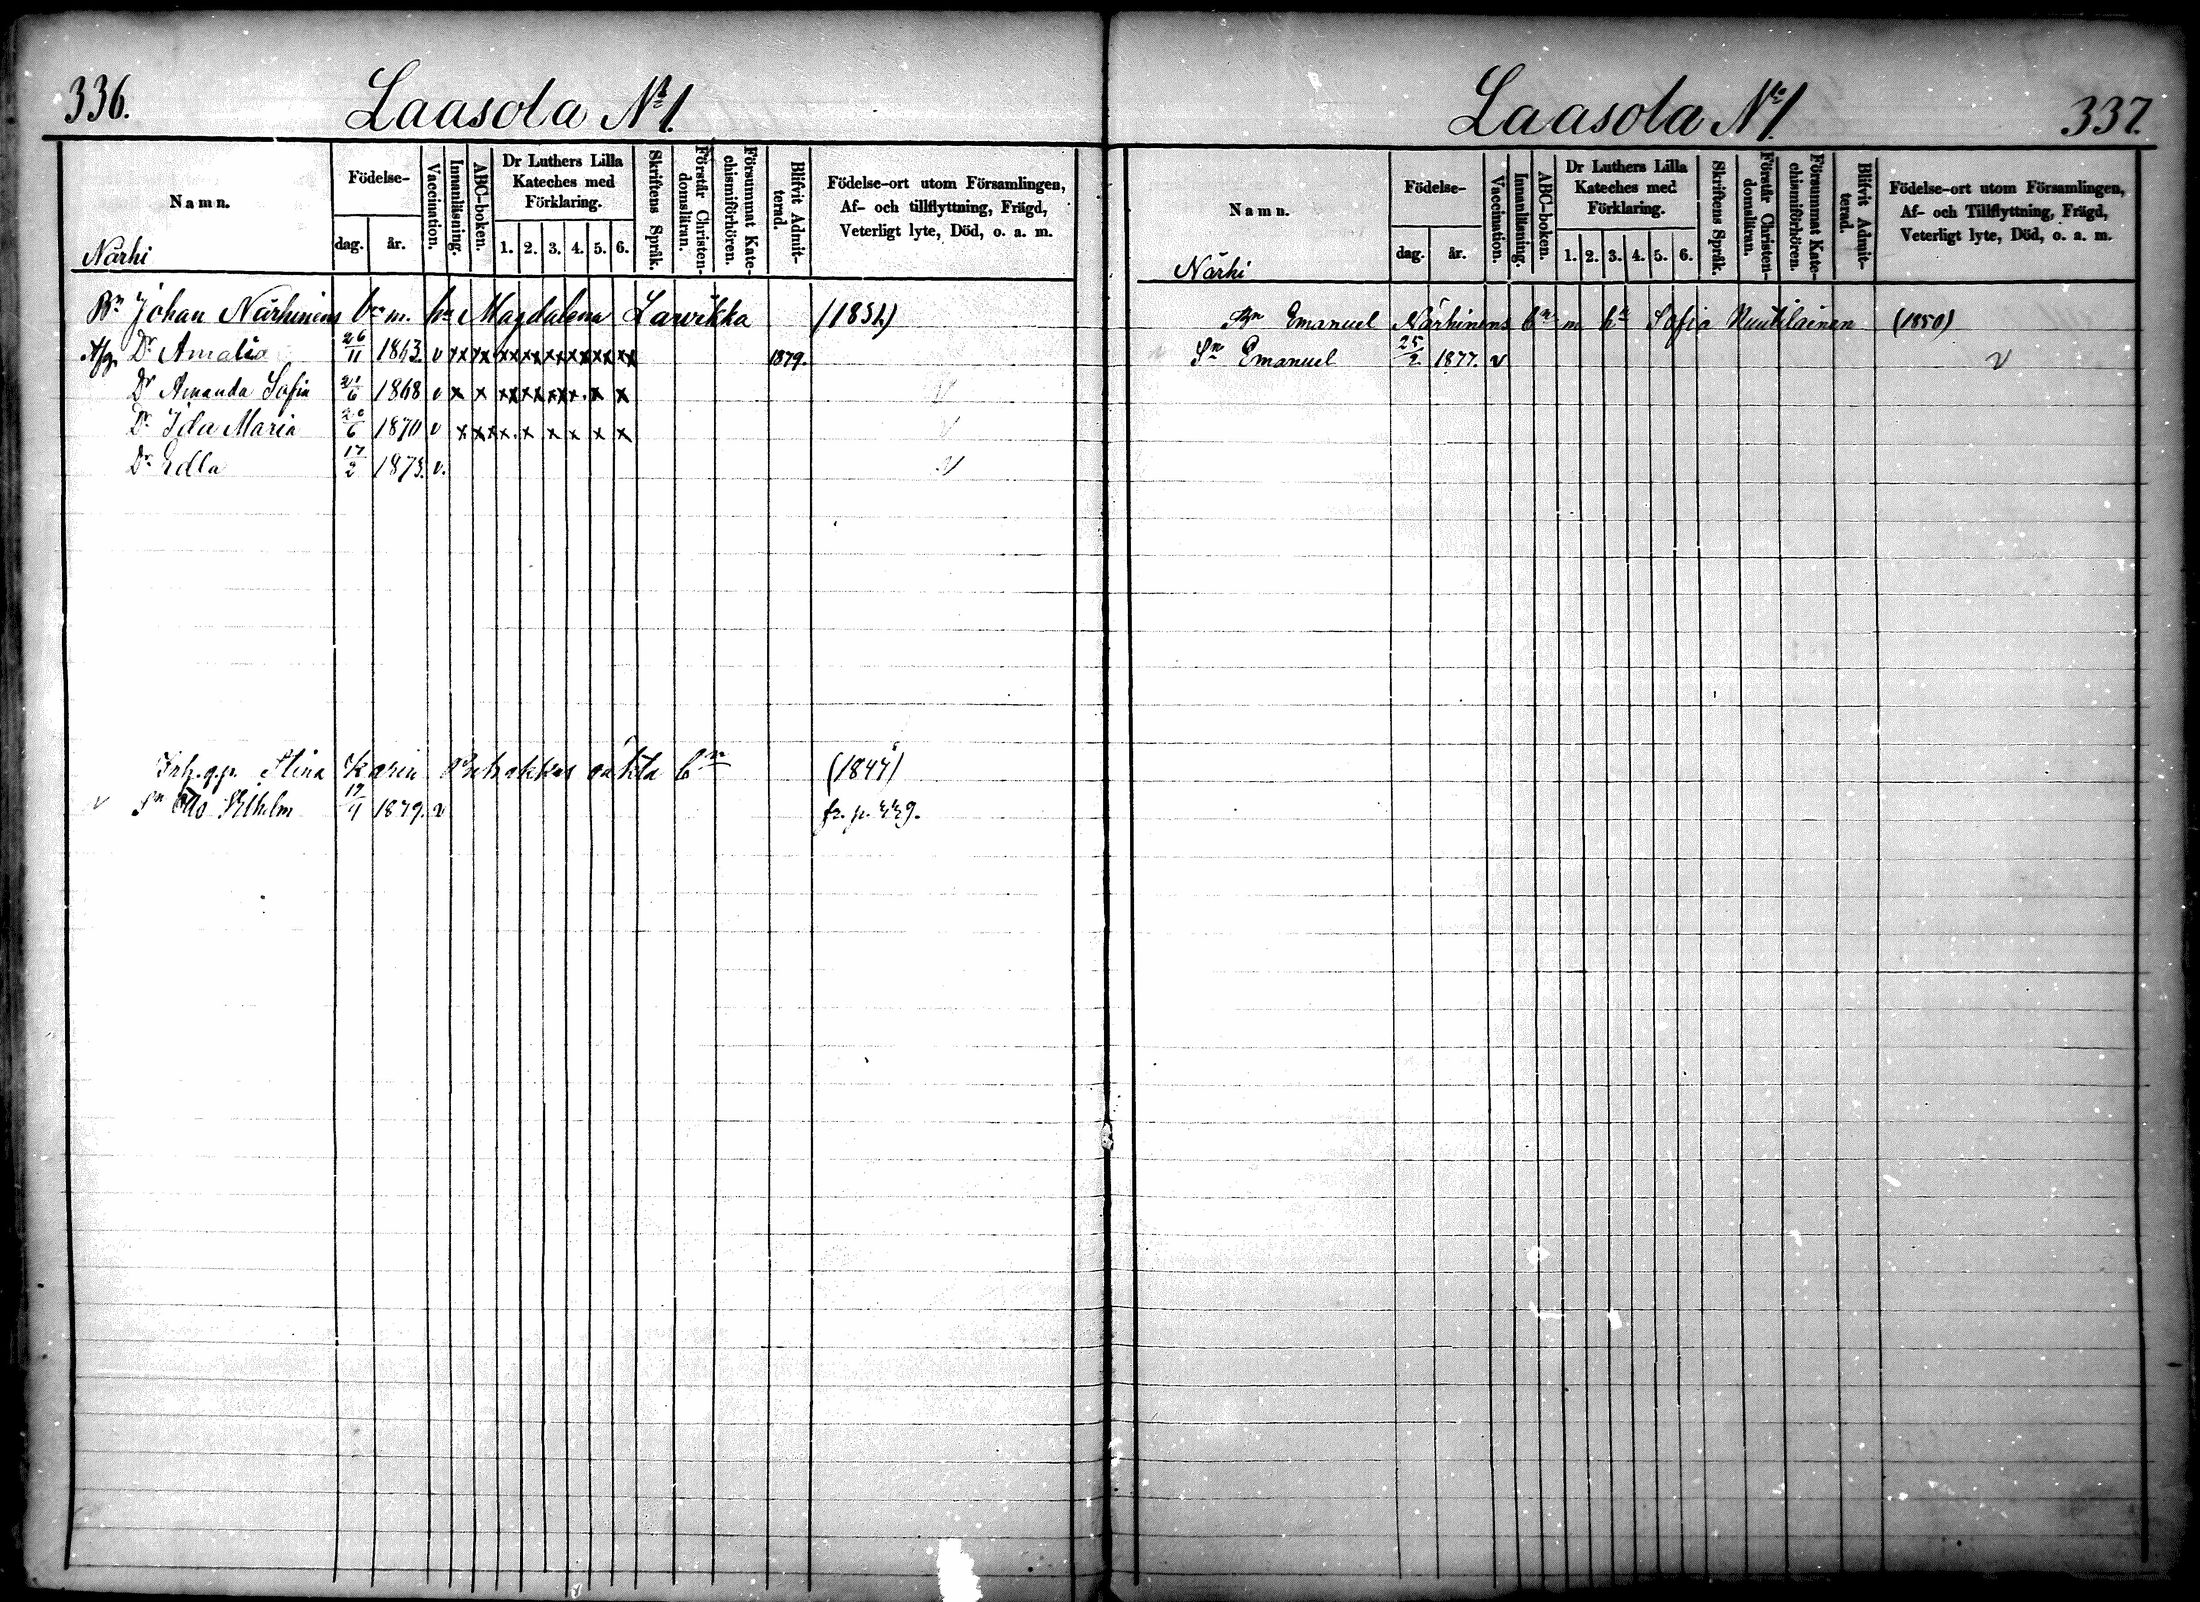 336.
Laasola No 1.
Namn.
Närhi
Födelse-
dag.
år.
Vaccination.
Innanläsning.
ABC-boken.
Dr Luthers Lilla
Kateches med
Förklaring.
1. 2. 3. 4. 5. 6.
Skriftens Språk.
Förstår Christen-
domsläran.
Försummat Kate-
chismiförhören.
Blifvit Admit-
terad.
Födelse-ort utom Församlingen,
Af- och tillflyttning, Frägd,
Veterligt lyte, Död, o. a. m.
Bn Johan Närhinens bn m. hu Magdalena Lavikka (1832)
Afg. Dr Amalia 26/11 1863. v xx xx xx xx xx xx xx xx 1879.
Dr Amanda Sofia 21/6 1868 v x x xx xx xx x. x x v
Dr Ida Maria 20/6 1870 v x xx x. x x x x x v
Dr Edla 17/2 1873. v. v
Inh. q.p. Stina Karin oäkta bn (1844)
v Sn Otto Vilhelm 19/4 1879. v fr. p. 449.
Laasola No 1.
337.
Namn.
Närhi
Födelse-
dag.
år.
Vaccination.
Innanläsning.
ABC-boken.
Dr Luthers Lilla
Kateches med
Förklaring.
1. 2. 3. 4. 5. 6.
Skriftens Språk.
Förstår Christen-
domsläran.
Försummat Kate-
chismiförhören.
Blifvit Admit-
terad.
Födelse-ort utom Församlingen,
Af- och Tillflyttning, Frägd,
Veterligt lyte, Död, o. a. m.
Bn Emanuel Närhinens bn m hu Sofia Nuutilainen (1850)
Sn Emanuel 25/2 1877. v v